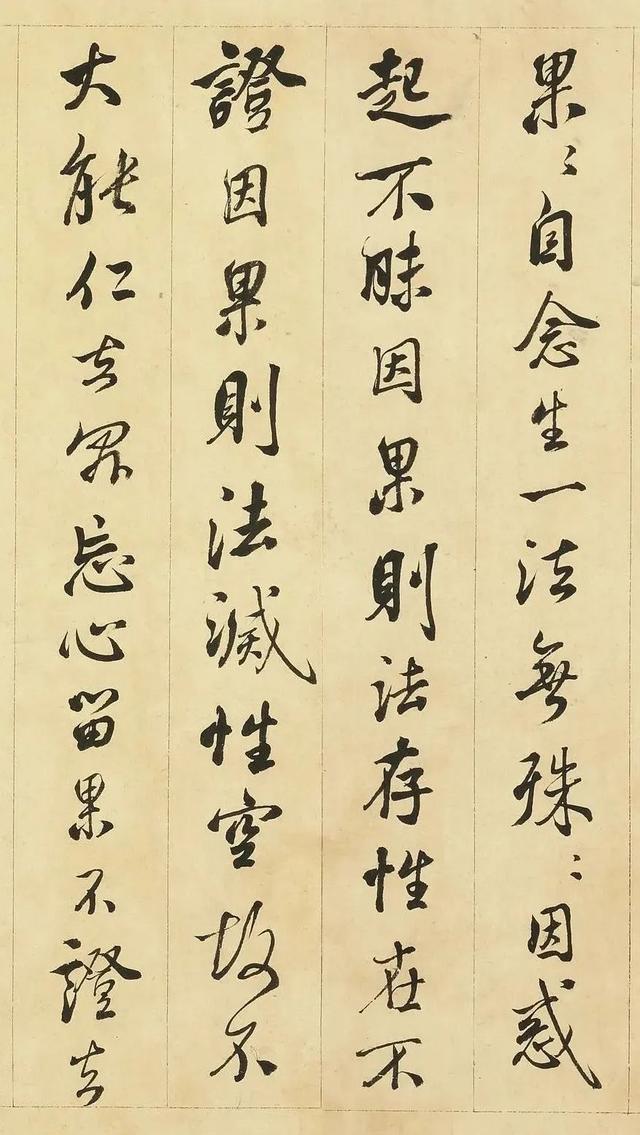 果〻自念生一法無殊〻因惑
起不昧因果則法存性在不
證因果則法滅性空故不
大能仁者罪忘心留果不證者